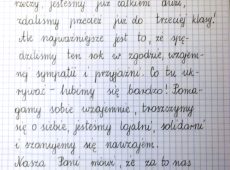 rzeczy, jesteśmy już całkiem duzi,
zdaliśmy przecież już do trzeciej klasy!
Ale najważniejsze jest to, że spę-
dziliśmy ten rok w zgodzie, wzajem-
nej sympatii i przyjaźni. Co tu uk-
rywać - lubimy się bardzo! Poma-
gamy sobie wzajemnie, troszczymy
się o siebie, jesteśmy lojalni, solidarni
i szanujemy się nawzajem.
Nasza Pani mówi, że za to nas